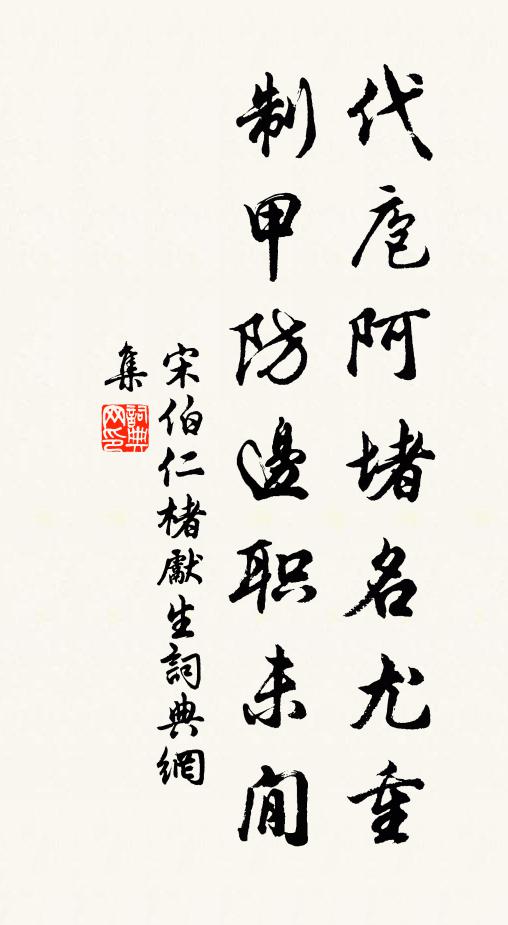 代庖阿堵名尤重
制甲防邊职未閒
宋伯仁楮獻生詞典網
集
詞典网印